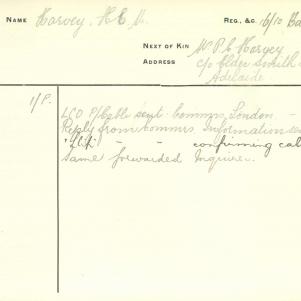 NAME Harvey, H. E. V. REG., &C. 16/10 Ba
NEXT OF KIN Mr P. C. Harvey
ADDRESS c/o Elder Smith
Adelaide
1/P. LCO P/Cable sent Commrs, London. -
Reply from Commrs. Information
" " - - confirming cal
Same forwarded Inquirer.